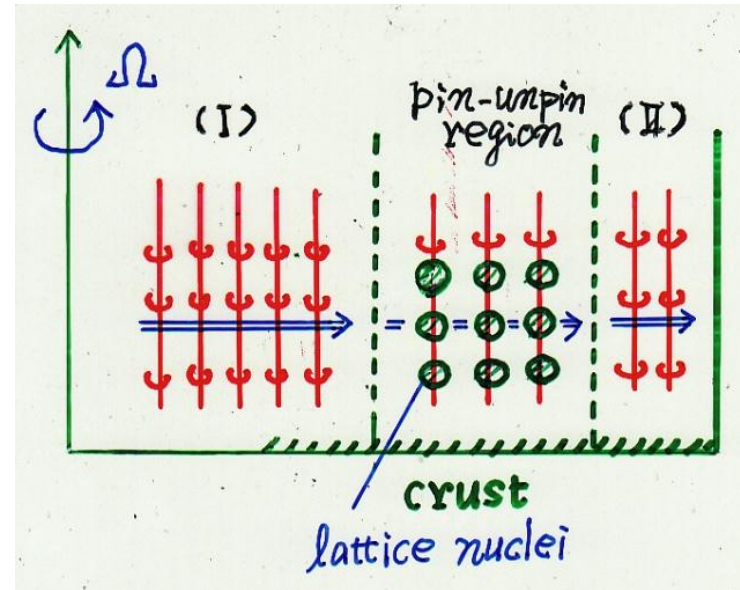 Ω
(I)
pin-unpin
region
(II)
crust
lattice nuclei